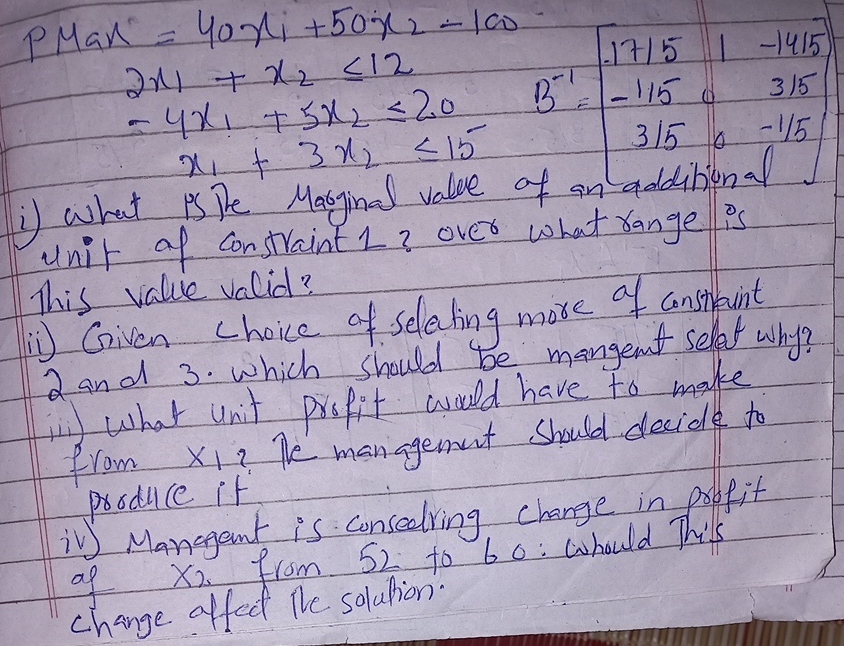 P Max = 40x1 + 50x2 - 100
2x1 + x2 ≤ 12
-4x1 + 5x2 ≤ 20
x1 + 3x2 ≤ 15
B^-1 = [ -17/5 1 -14/5
-1/5 0 3/5
3/5 0 -1/5 ]
i) What is the Marginal value of an additional
unit of constraint 1? over what range is
This value valid?
ii) Given choice of selating more of constraint
2 and 3. which should be mangemt selet why?
iii) What unit profit would have to make
from x1? The management should decide to
produce it
iv) Managemt is conseelring change in profit
of x2 from 52 to 60: Whould This
change affect the solution.